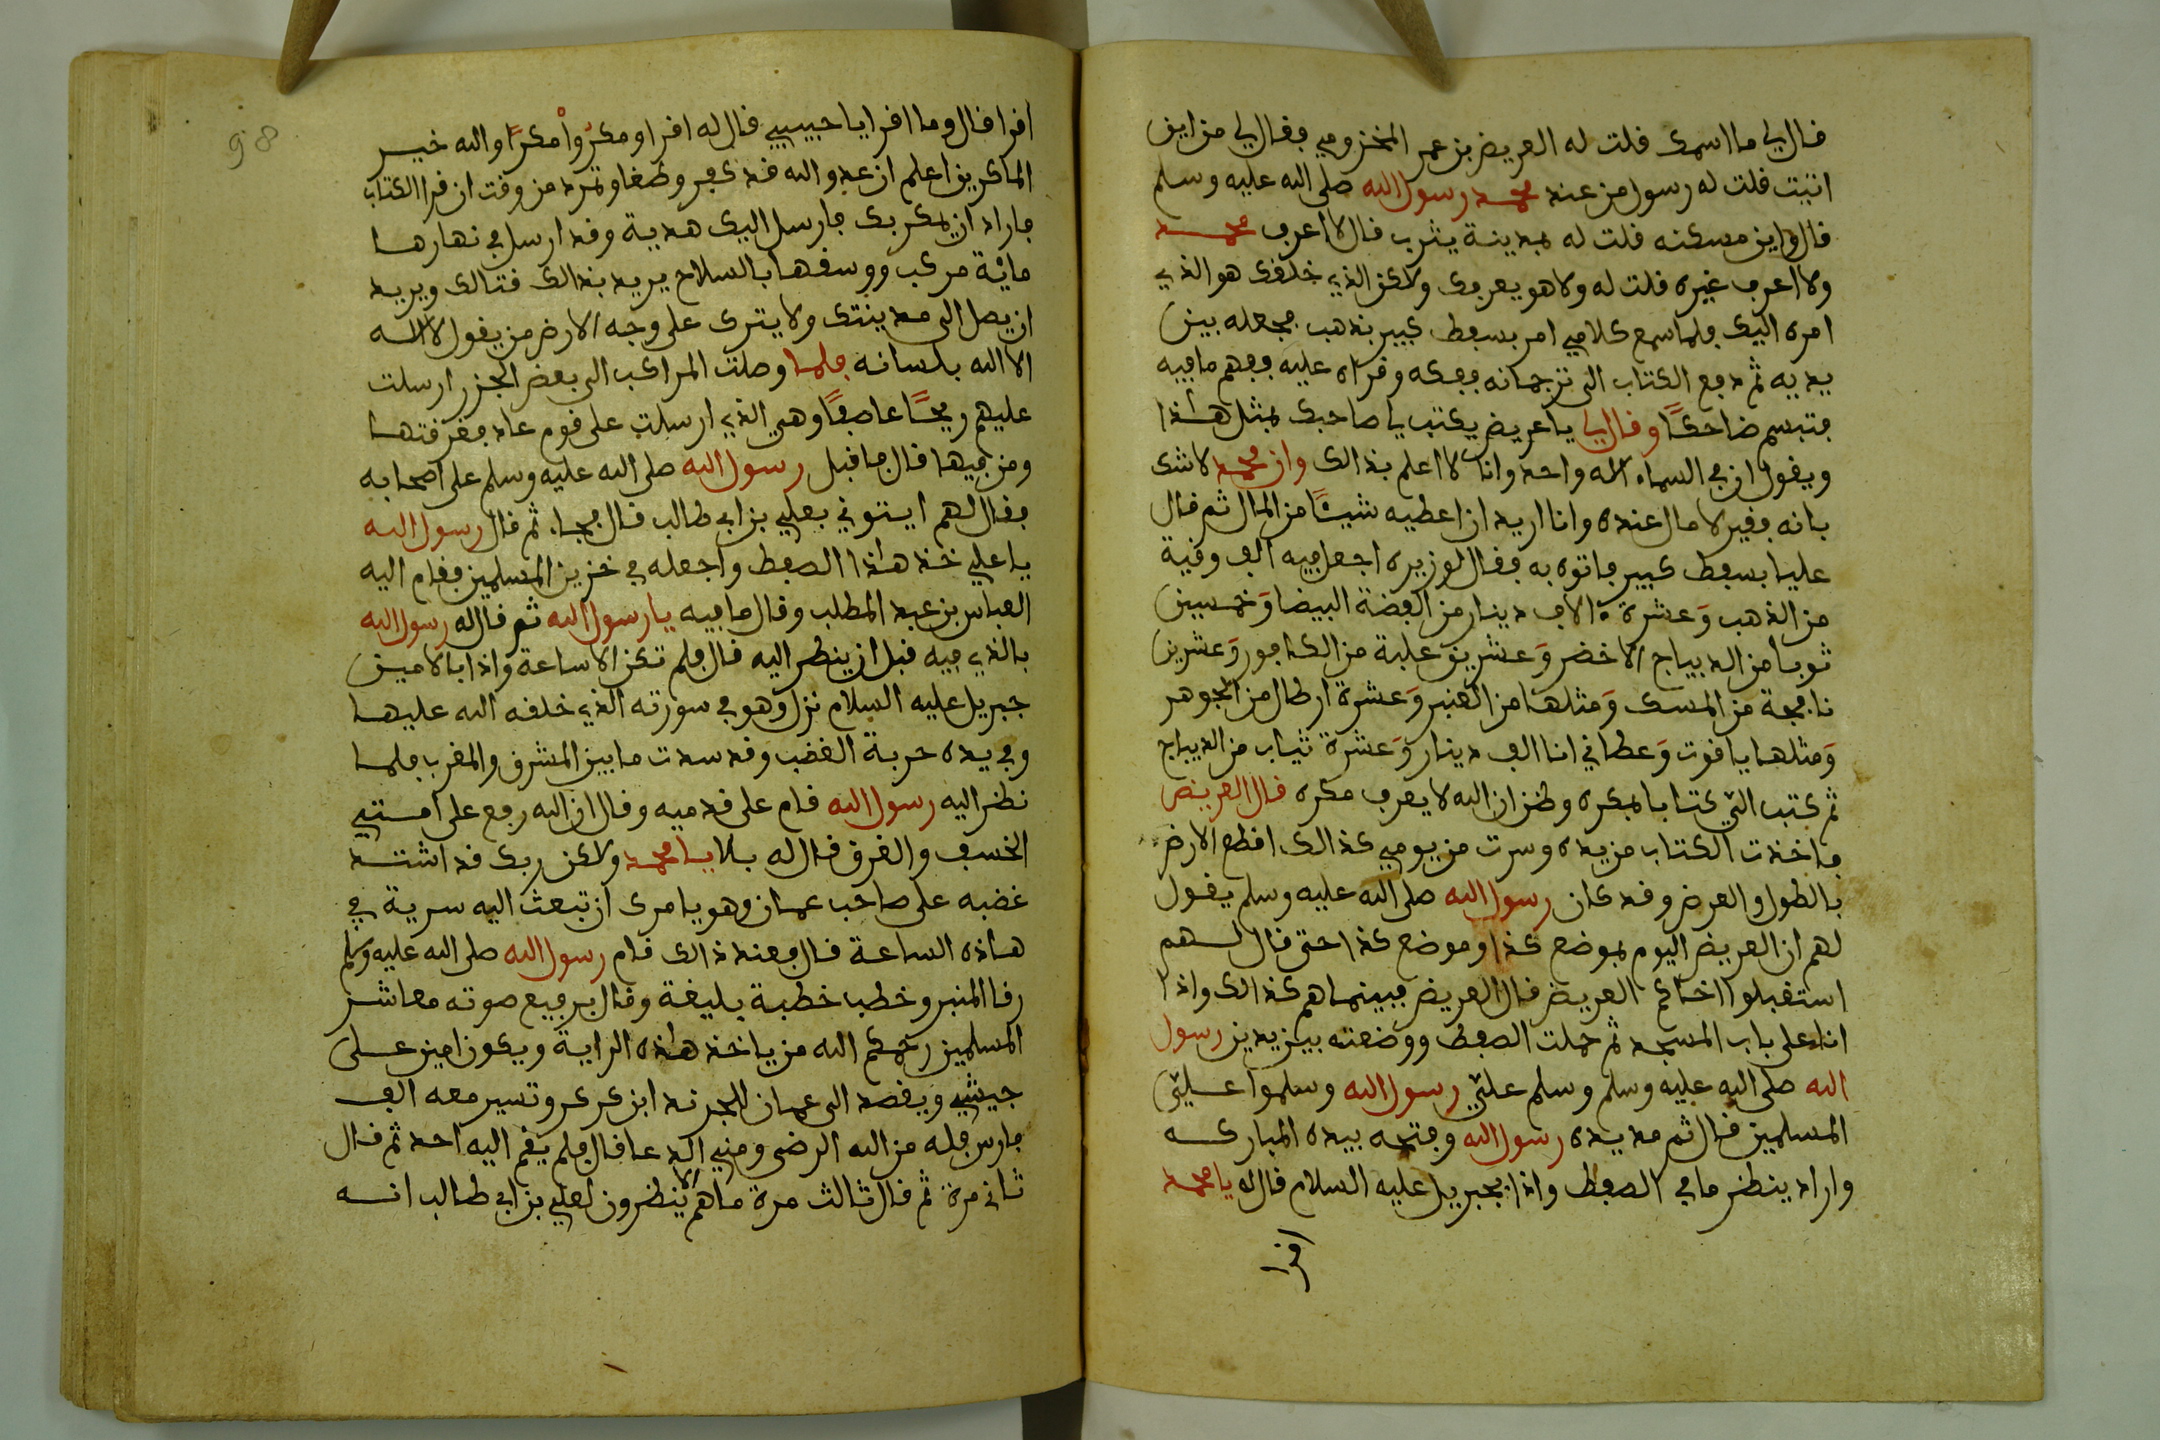 قال لي ما اسمك قلت له العريض بن عمر المخزومي فقال لي من اين
اتيت قلت له رسول من عند محمد رسول الله صلى الله عليه وسلم
قال واين مسكنه قلت له بمدينة يثرب قال لا اعرف محمد
ولا اعرف غيره قلت له ولا هو يعرفك ولاكن الذي خلقك هو الذي
امره اليك فلما سمع كلامي امر بسفط كبير بذهب فجعله بين
يديه ثم دفع الكتاب الى ترجمانه ففكه وقراه عليه ففهم ما فيه
فتبسم ضاحكًا وقال ليا يا عريض يكتب يا صاحبك بمثل هاذا
ويقول ان في السماء اله واحد وانا لا اعلم بذالك وان محمد لاشك
بانه فقير لا مال عنده وانا اريد ان اعطيه شيئًا من المال ثم قال
عليا بسفط كبير فاتوه به فقال لوزيره اجعل فيه الف وقية
من الذهب وَعشرة ءالاف دينار من الفضة البيضا وَخمسين
ثوبا من الديباج الاخضر وَعشرين علبة من الكافور وَعشرين
نافجة من المسك وَمثلها من العنبر وَعشرة ارطال من الجوهر
وَمثلها ياقوت وَعطاني انا الف دينار وَعشرة ثياب من الديباج
ثم كتب اليّ كتابا بمكره وظن ان الله لا يعرف مكره قال العريض
فاخذت الكتاب من يده وسرت من يومي كذالك اقطع الارض
بالطول والعرض وقد كان رسول الله صلى الله عليه وسلم يقول
لهم ان العريض اليوم بموضع كذا وموضع كذا حتى قال لهم
استقبلوا اخاكم العريض قال العريض فبينما هم كذالك واذا
انا على باب المسجد ثم حملت الصفط ووضعته بين يدين رسول
الله صلى الله عليه وسلم وسلم عليّ رسول الله وسلموا عليّ
المسلمين قال ثم مد يده رسول الله وفتحه بيده المباركه
واراد ينظر ما في الصفط واذا بجبريل عليه السلام قال له يا محمد
اقرا
اقرا قال وما اقرا يا حبيبي قال له اقرا ومكرُوا مكرًا والله خير
الماكرين اعلم ان عدو الله قد كفر وطغا وتمرد من وقت ان قرا الكتاب
فاراد ان يمكر بك فارسل اليك هدية وقد ارسل في نهارها
مائة مركب ووسقها بالسلاح يريد بذالك قتالك ويريد
ان يصل الى مدينتك ولا يترك على وجه الارض من يقول لا اله
الا الله بلسانه فلما وصلت المراكب الى بعض الجزر ارسلت
عليهم ريحًا عاصفًا وهي الذي ارسلت على قوم عاد فغرقتها
ومن فيها قال فاقبل رسول الله صلى الله عليه وسلم على اصحابه
فقال لهم ايتوني بعلي بن ابي طالب قال فجا. ثم قال رسول الله
يا علي خذ هاذا الصفط واجعله في خزين المسلمين فقام اليه
العباس بن عبد المطلب وقال ما فيه يا رسول الله ثم قال له رسول الله
بالذي فيه قبل ان ينظر اليه قال فلم تكن الا ساعة واذا بالامين
جبريل عليه السلام نزل وهو في سورته الذي خلقه الله عليها
وفي يده حربة الغضب وقد سدت ما بين المشرق والمغرب فلما
نظر اليه رسول الله قام على قدميه وقال ان الله رفع على امتي
الخسف والغرق قال له بلا يا محمد ولاكن ربك قد اشتد
غضبه على صاحب عمان وهو يامرك ان تبعث اليه سرية في
هاذه الساعة قال فعند ذالك قام رسول الله صلى الله عليه وسلم
رقا المنبر وخطب خطبة بليغة وقال برفيع صوته معاشر
المسلمين رحمكم الله من ياخذ هاذه الراية ويكون امين على
جيشي ويقصد الى عمان للجرند ابن كركر وتسير معه الف
فارس فله من الله الرضى ومني الدعا قال فلم يقم اليه احد ثم قال
ثاني مرة ثم قال ثالث مرة ما هم الا ينظرون لعلي بن ابي طالب انه